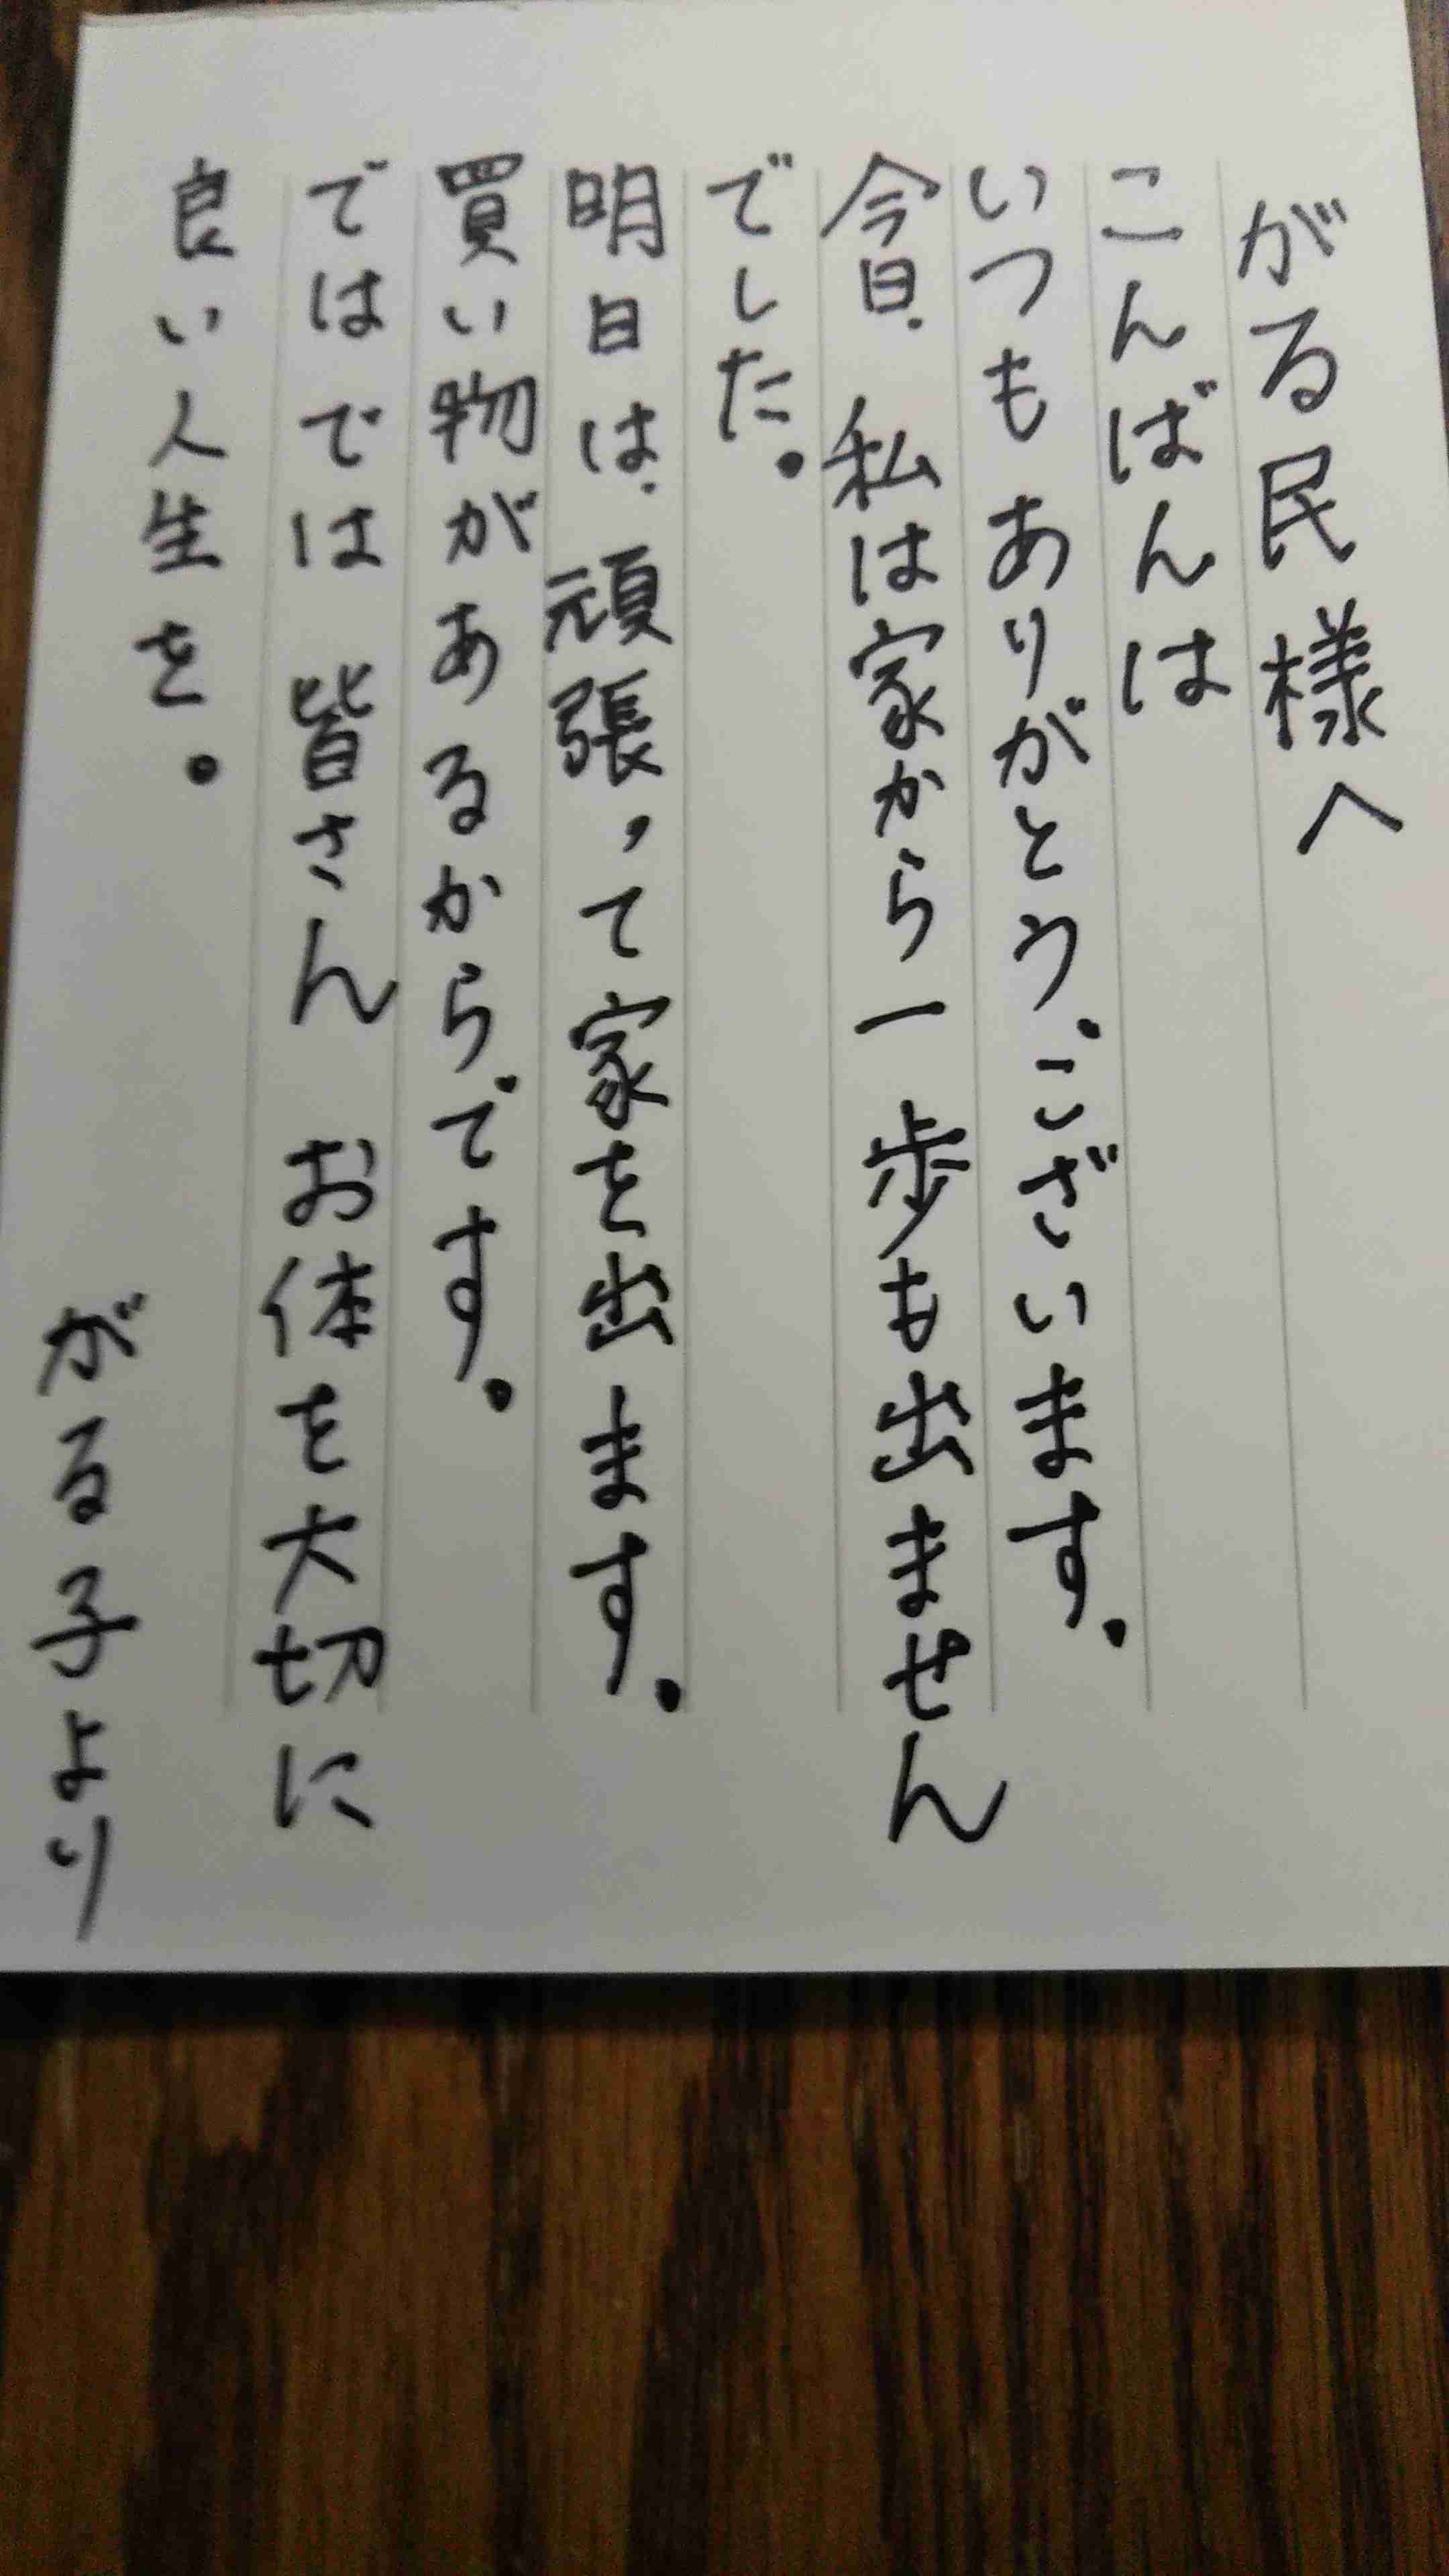 がる民様へ
こんばんは
いつもありがとうございます。
今日、私は家から一歩も出ません
でした。
明日は、頑張って家を出ます。
買い物があるからです。
ではでは 皆さん お体を大切に
良い人生を。
がる子より